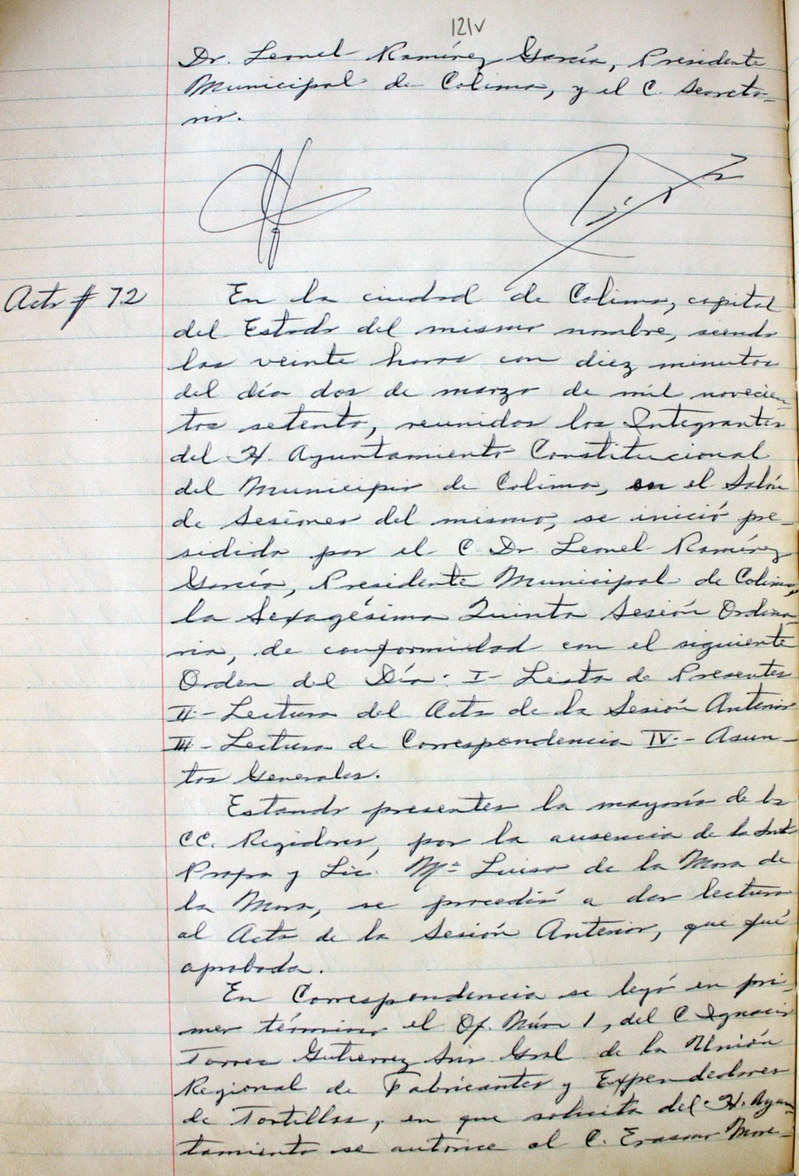 121v
Dr. Leonel Ramírez García, Presidente
Municipal de Colima, y el C. Secreta-
rio.
Acta # 72
En la ciudad de Colima, capital
del Estado del mismo nombre, siendo
las veinte horas con diez minutos
del día dos de marzo de mil novecien-
tos setenta, reunidos los Integrantes
del H. Ayuntamiento Constitucional
del Municipio de Colima, en el Salón
de Sesiones del mismo, se inició pre-
sidida por el C. Dr. Leonel Ramírez
García, Presidente Municipal de Colima,
la Sexagésima Quinta Sesión Ordina-
ria, de conformidad con el siguiente
Orden del Día: I- Lista de Presentes
II- Lectura del Acta de la Sesión Anterior
III- Lectura de Correspondencia IV.- Asun-
tos Generales.
Estando presentes la mayoría de los
CC. Regidores, por la ausencia de la
Profra y Lic. Mª Luisa de la Mora de
la Mora, se procedió a dar lectura
al Acta de la Sesión Anterior, que fué
aprobada.
En Correspondencia se leyó en pri-
mer término el Of. Núm 1, del C Ignacio
Torres Gutierrez Srio Gral de la Unión
Regional de Fabricantes y Expendedores
de Tortillas, en que solicita del H. Ayun-
tamiento se autorice al C. Erasmo More-